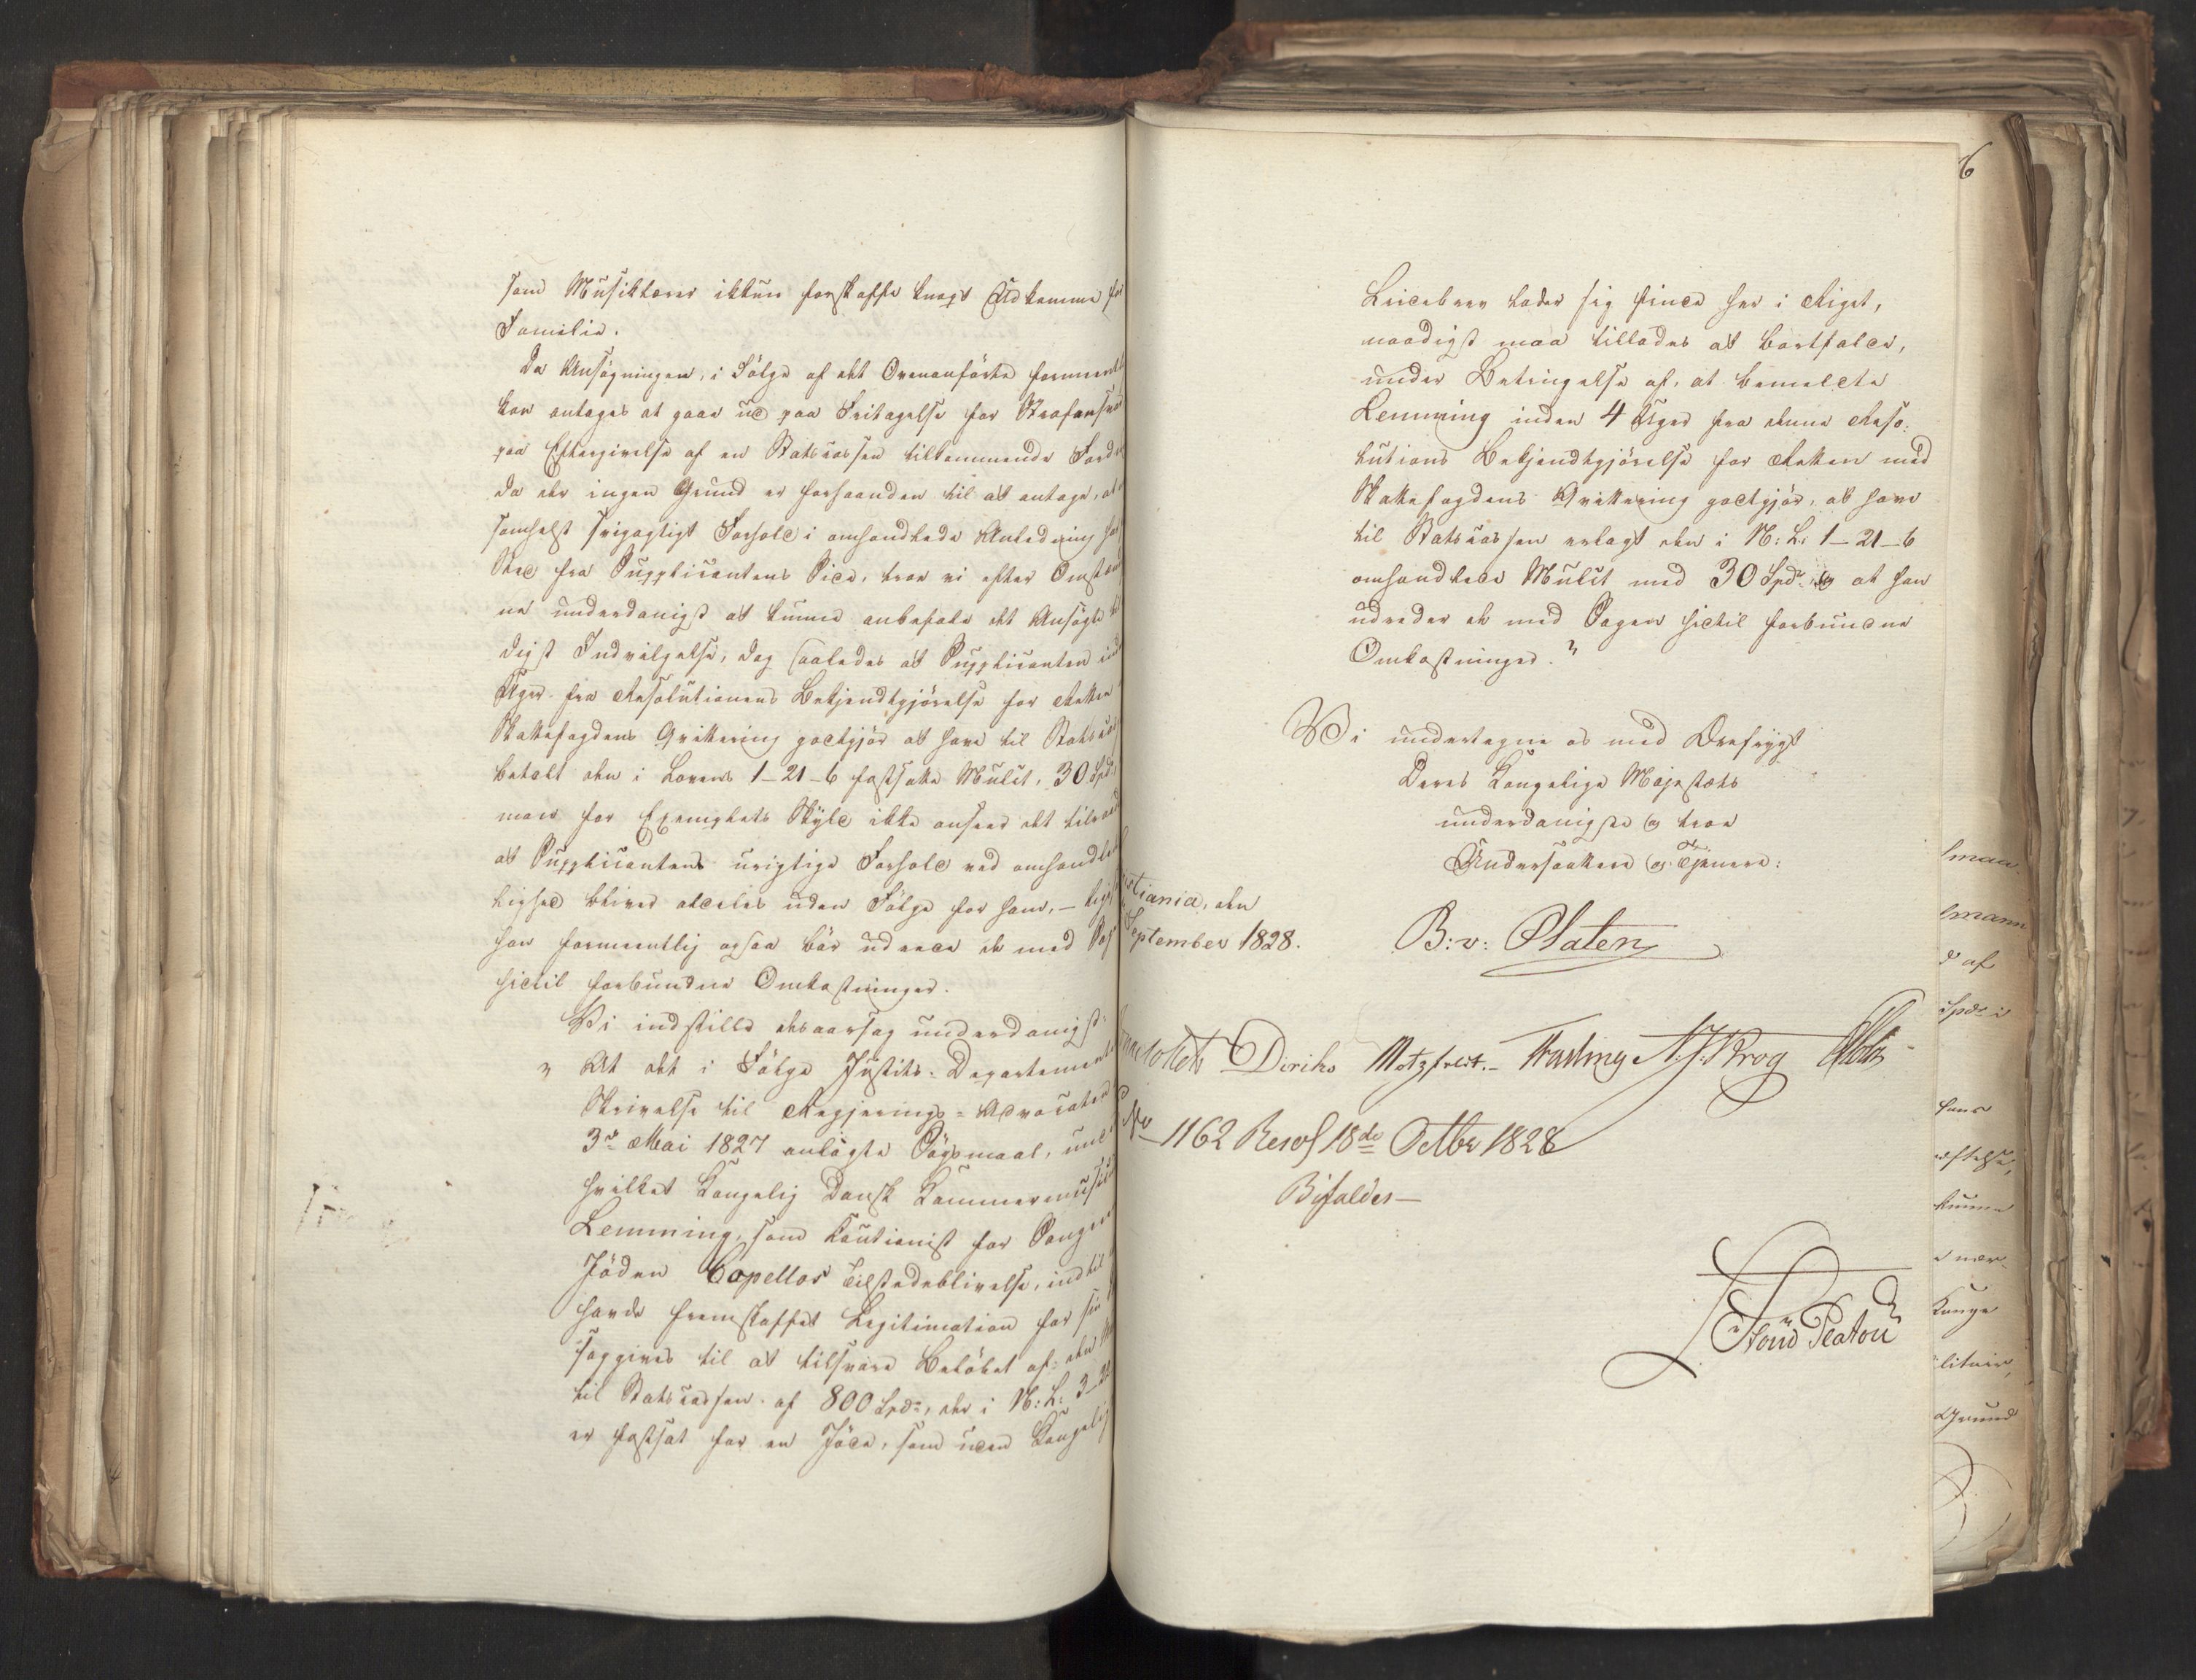 som Musiklærer ikkun forskaffe knapt Udkomme for
Familie.
Da Ansøgningen, i Følge af det Ovenanførte formeentl
kan antages at gaae ud paa Fritagelse for Strafansvar
paa Eftergivelse af en Statscassen tilkommende Fordr
da der ingen Grund er forhaanden til at antage, at
somhelst svigagtigt Forhold i omhandlede Anledning har
Sted fra Supplicantens Side, troe vi efter Omstæn
ne underdanigst at kunne anbefale det Ansøgte
digst Indvilgelse, dog saaledes at Supplicanten ind
Uger fra Resolutionens Bekjendtgjørelse for Retten
Skattefogdens Qvittering godtgjør at have til Statscas
betalt den i Lovens 1-21-6 fastsatte Mulct, 30 Spd,
man for Exemplets Skyld ikke anseer det tilraad
at Supplicantens urigtige Forhold ved omhandle
lighed bliver aldeles uden Følge for ham, - lige
han formeentlig ogsaa bør udrede de med Sag
hidtil forbundne Omkostninger.
Vi indstille desaarsag underdanigst:
" At det i Følge Justits-Departement
Skrivelse til Regjerings-Advocaten
3die Mai 1827 anlagte Søgsmaal, und
hvilket Kongelig Dansk Kammermusic
Lemming, som Cautionist for Sanger
Jøden Copellos Tilstedeblivelse, indtil
havde fremskaffet Legitimation for sin
søggives til at tilsvare Beløbet af den
til Statscassen af 800 Spd, der i N: L: 3-22
er fastsat for en Jøde, som uden Kongelig
6
Leidebrev lader sig finde her i Riget,
naadigst maa tillades at bortfalde,
under Betingelse af, at bemeldte
Lemming inden 4 Uger fra denne Reso-
lutions Bekjendtgjørelse for Retten med
Skattefogdens Qvittering godtgjør, at have
til Statscassen erlagt den i N: L: 1-21-6
omhandlede Mulct med 30 Spd, og at han
udreder de med Sagen hidtil forbundne
Omkostninger."
Vi undertegne os med Ærefrygt
Deres Kongelige Majestæts
underdanigste og troe
Undersaatter og Tjenere:
tiania, den
September 1828.
B: v: Platen
Diriks Motzfeldt. Fasting N. J. Krog
No 1162 Resol 18de Octbr 1828
Bifaldes